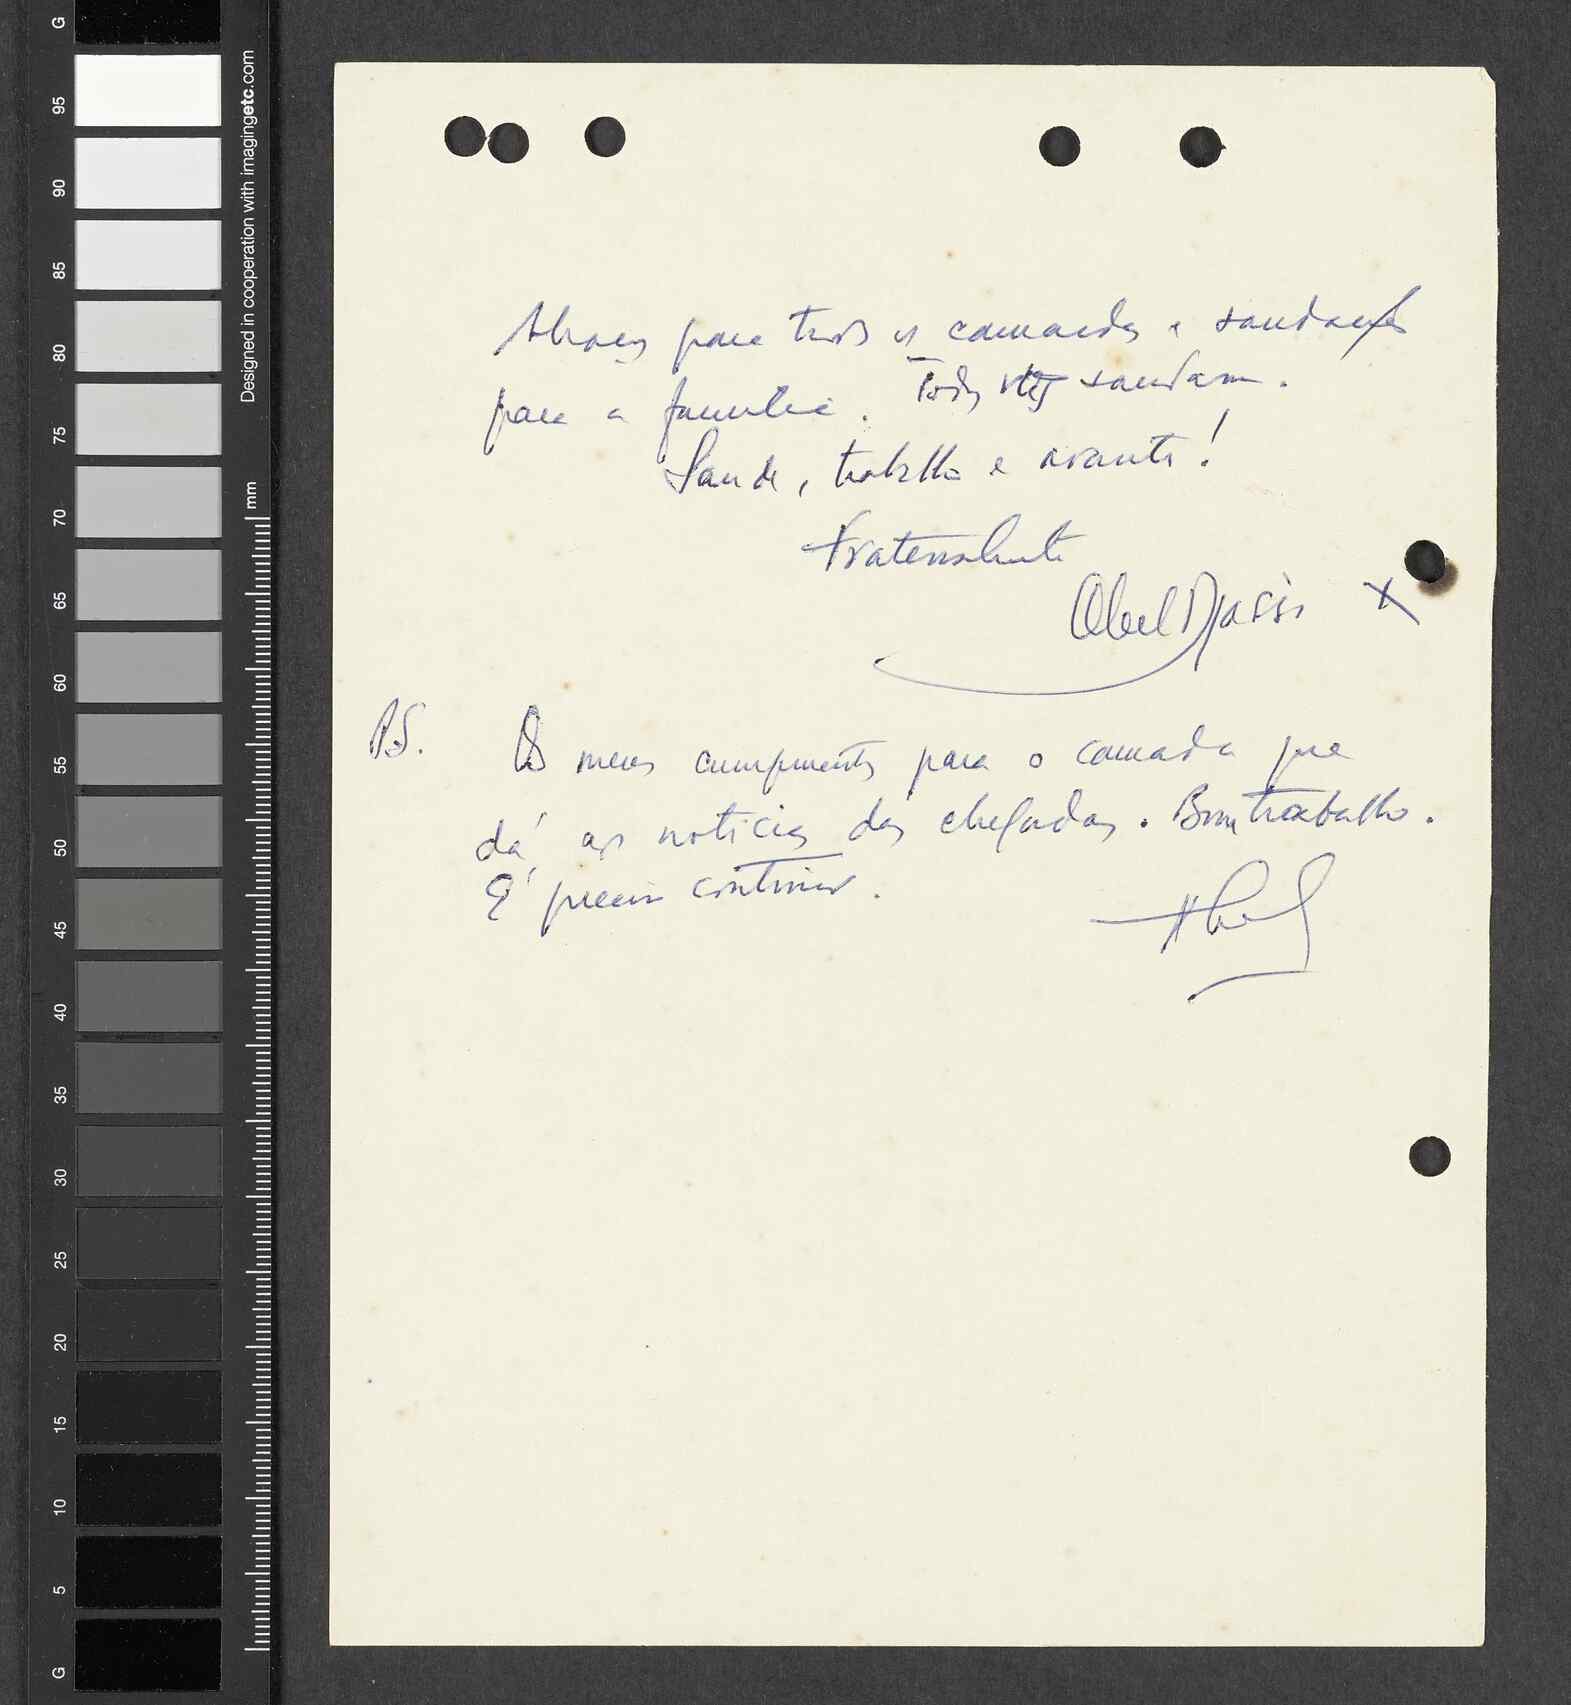 Abraços para todos os camaradas e saudações
para a família. Todos vos saudam.
Saude, trabalho e avante!
Fraternalmente
Abel Djassi X
P.S. Os meus cumprimentos para o camarada que
dá as notícias das chegadas. Bom trabalho.
É preciso continuar.
Abel
Designed in cooperation with imagingetc.com
mm
G
95
90
85
80
75
70
65
60
55
50
45
40
35
30
25
20
15
10
5
G